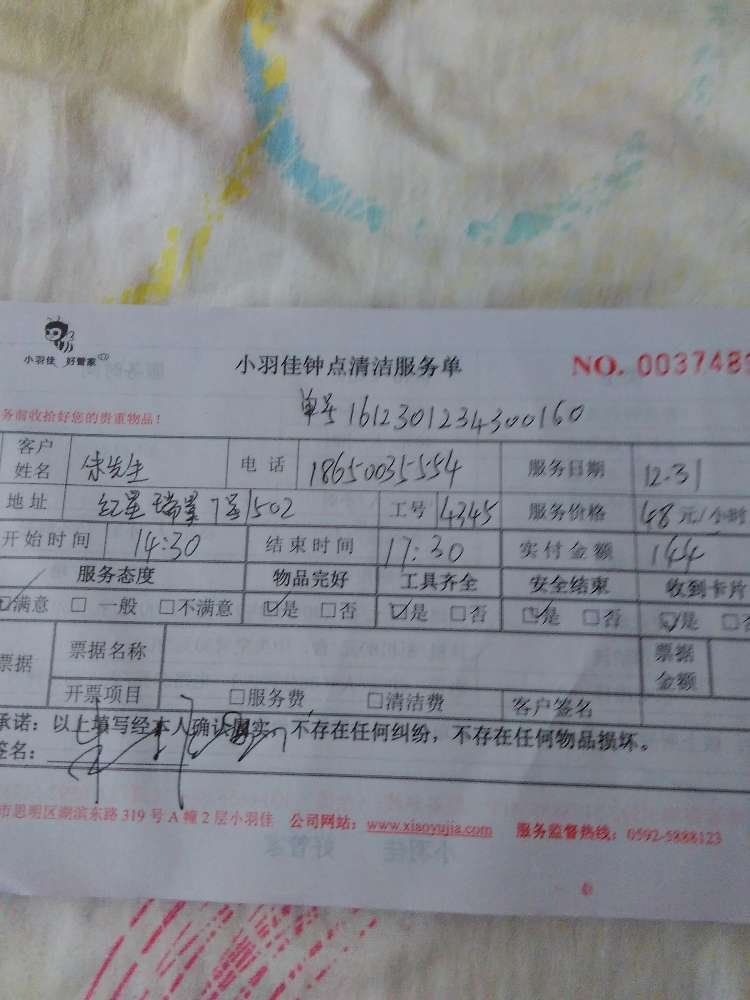 小羽佳 好管家
小羽佳钟点清洁服务单 NO. 003748
单号 1612301234300160
务前收拾好您的贵重物品!
客户姓名 朱先生 电话 18650035554 服务日期 12.31
地址 红星瑞景7号1502 工号 4345 服务价格 48元/小时
开始时间 14:30 结束时间 17:30 实付金额 144
服务态度 物品完好 工具齐全 安全结束 收到卡片
☑满意 □一般 □不满意 ☑是 □否 ☑是 □否 ☑是 □否 ☑是 □否
票据 票据名称 票据金额
开票项目 □服务费 □清洁费 客户签名
承诺:以上填写经本人确认属实,不存在任何纠纷,不存在任何物品损坏。
签名:
市思明区湖滨东路319号A幢2层小羽佳 公司网站:www.xiaoyujia.com 服务监督热线:0592-5888123